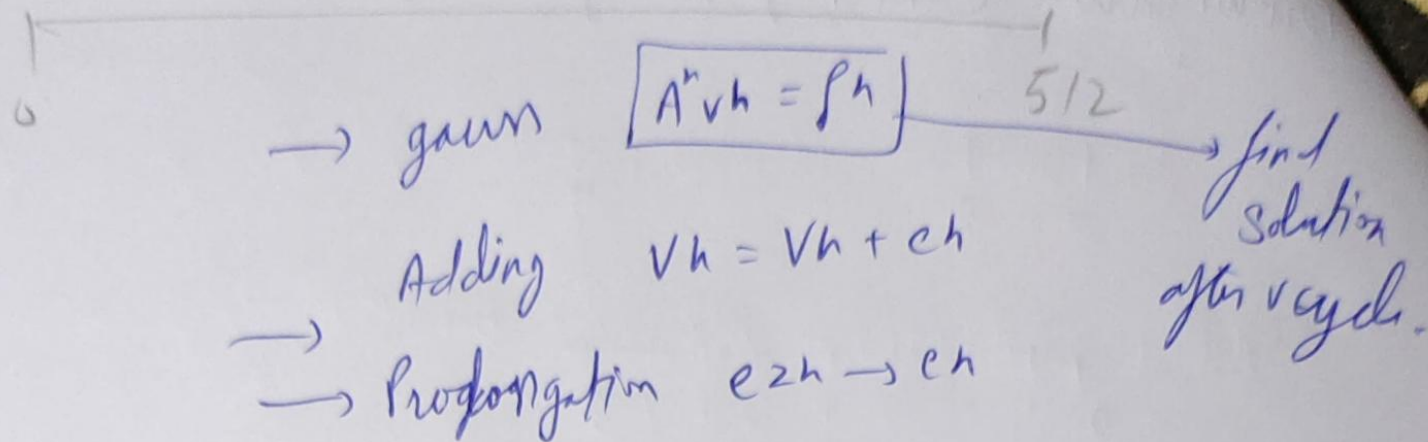 0 512
→ gauss A^h vh = fh → find
solution
after vcycle.
Adding vh = vh + eh
→
→ Prolongation e2h → eh